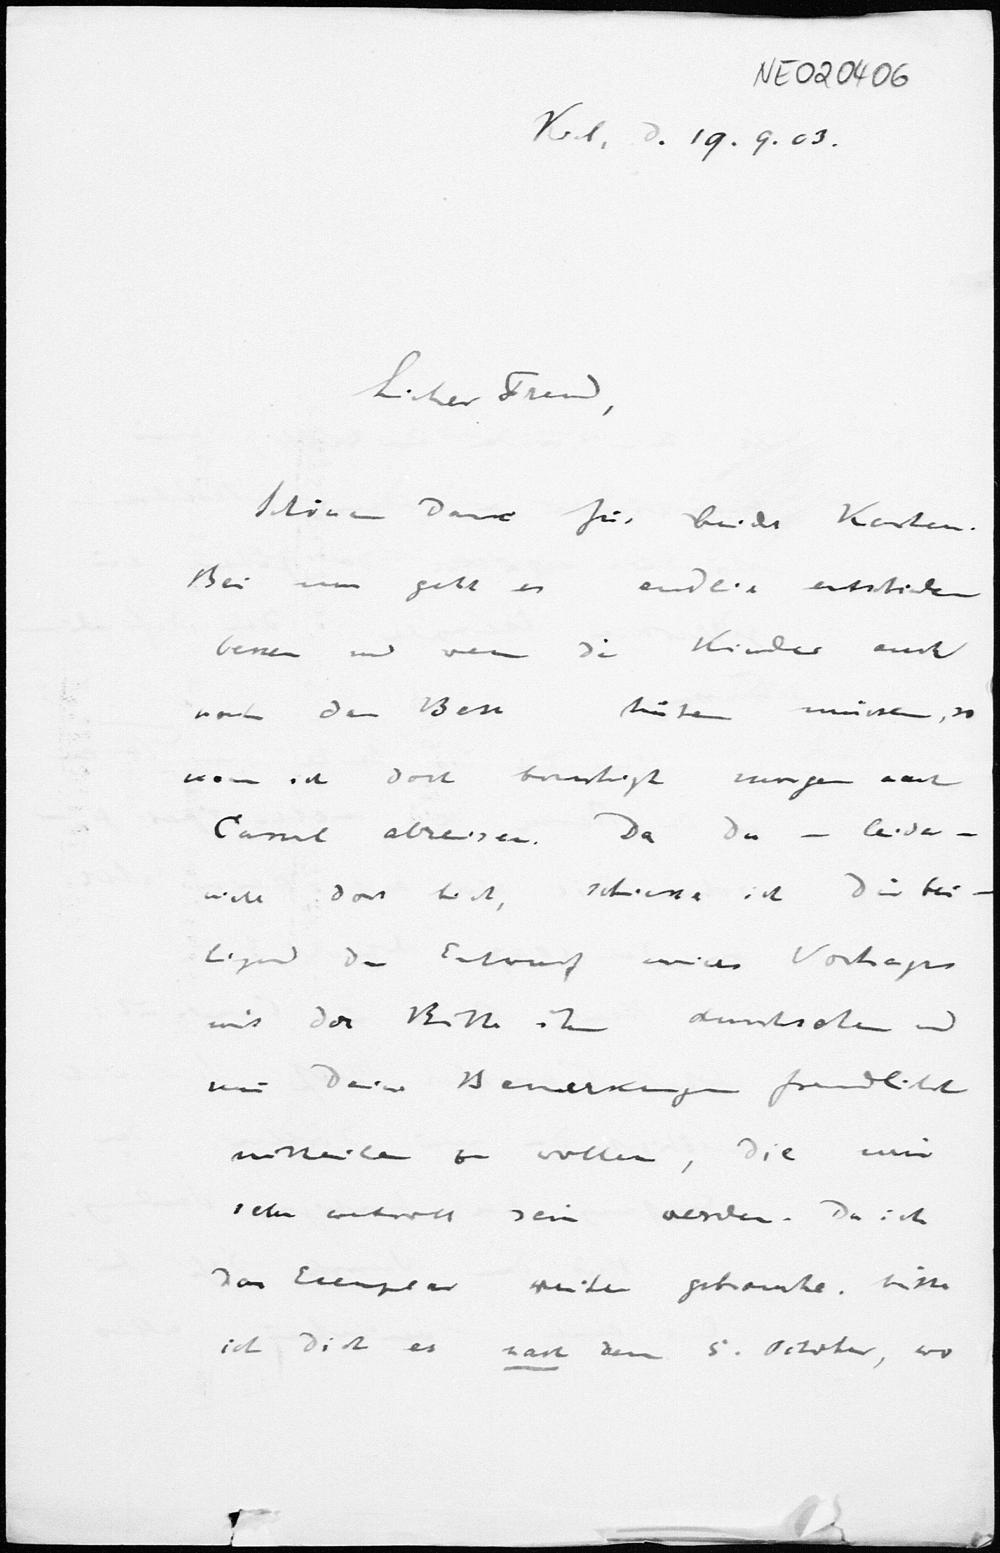 NE020406
Kiel, d. 19.9.03.
Lieber Freund,
Schönen Dank für beide Karten.
Bei uns geht es endlich entschieden
besser und wenn die Kinder auch
noch das Bett hüten müssen, so
kann ich doch beruhigt morgen nach
Cassel abreisen. Da Du – leider –
nicht dort bist, schicke ich Dir bei-
liegend den Entwurf meines Vortrages
mit der Bitte ihn durchsehen und
mir Deine Bemerkungen freundlichst
mitteilen zu wollen, die mir
sehr wertvoll sein werden. Da ich
das Exemplar weiter gebrauche, bitte
ich Dich es nach dem 5. October, wo